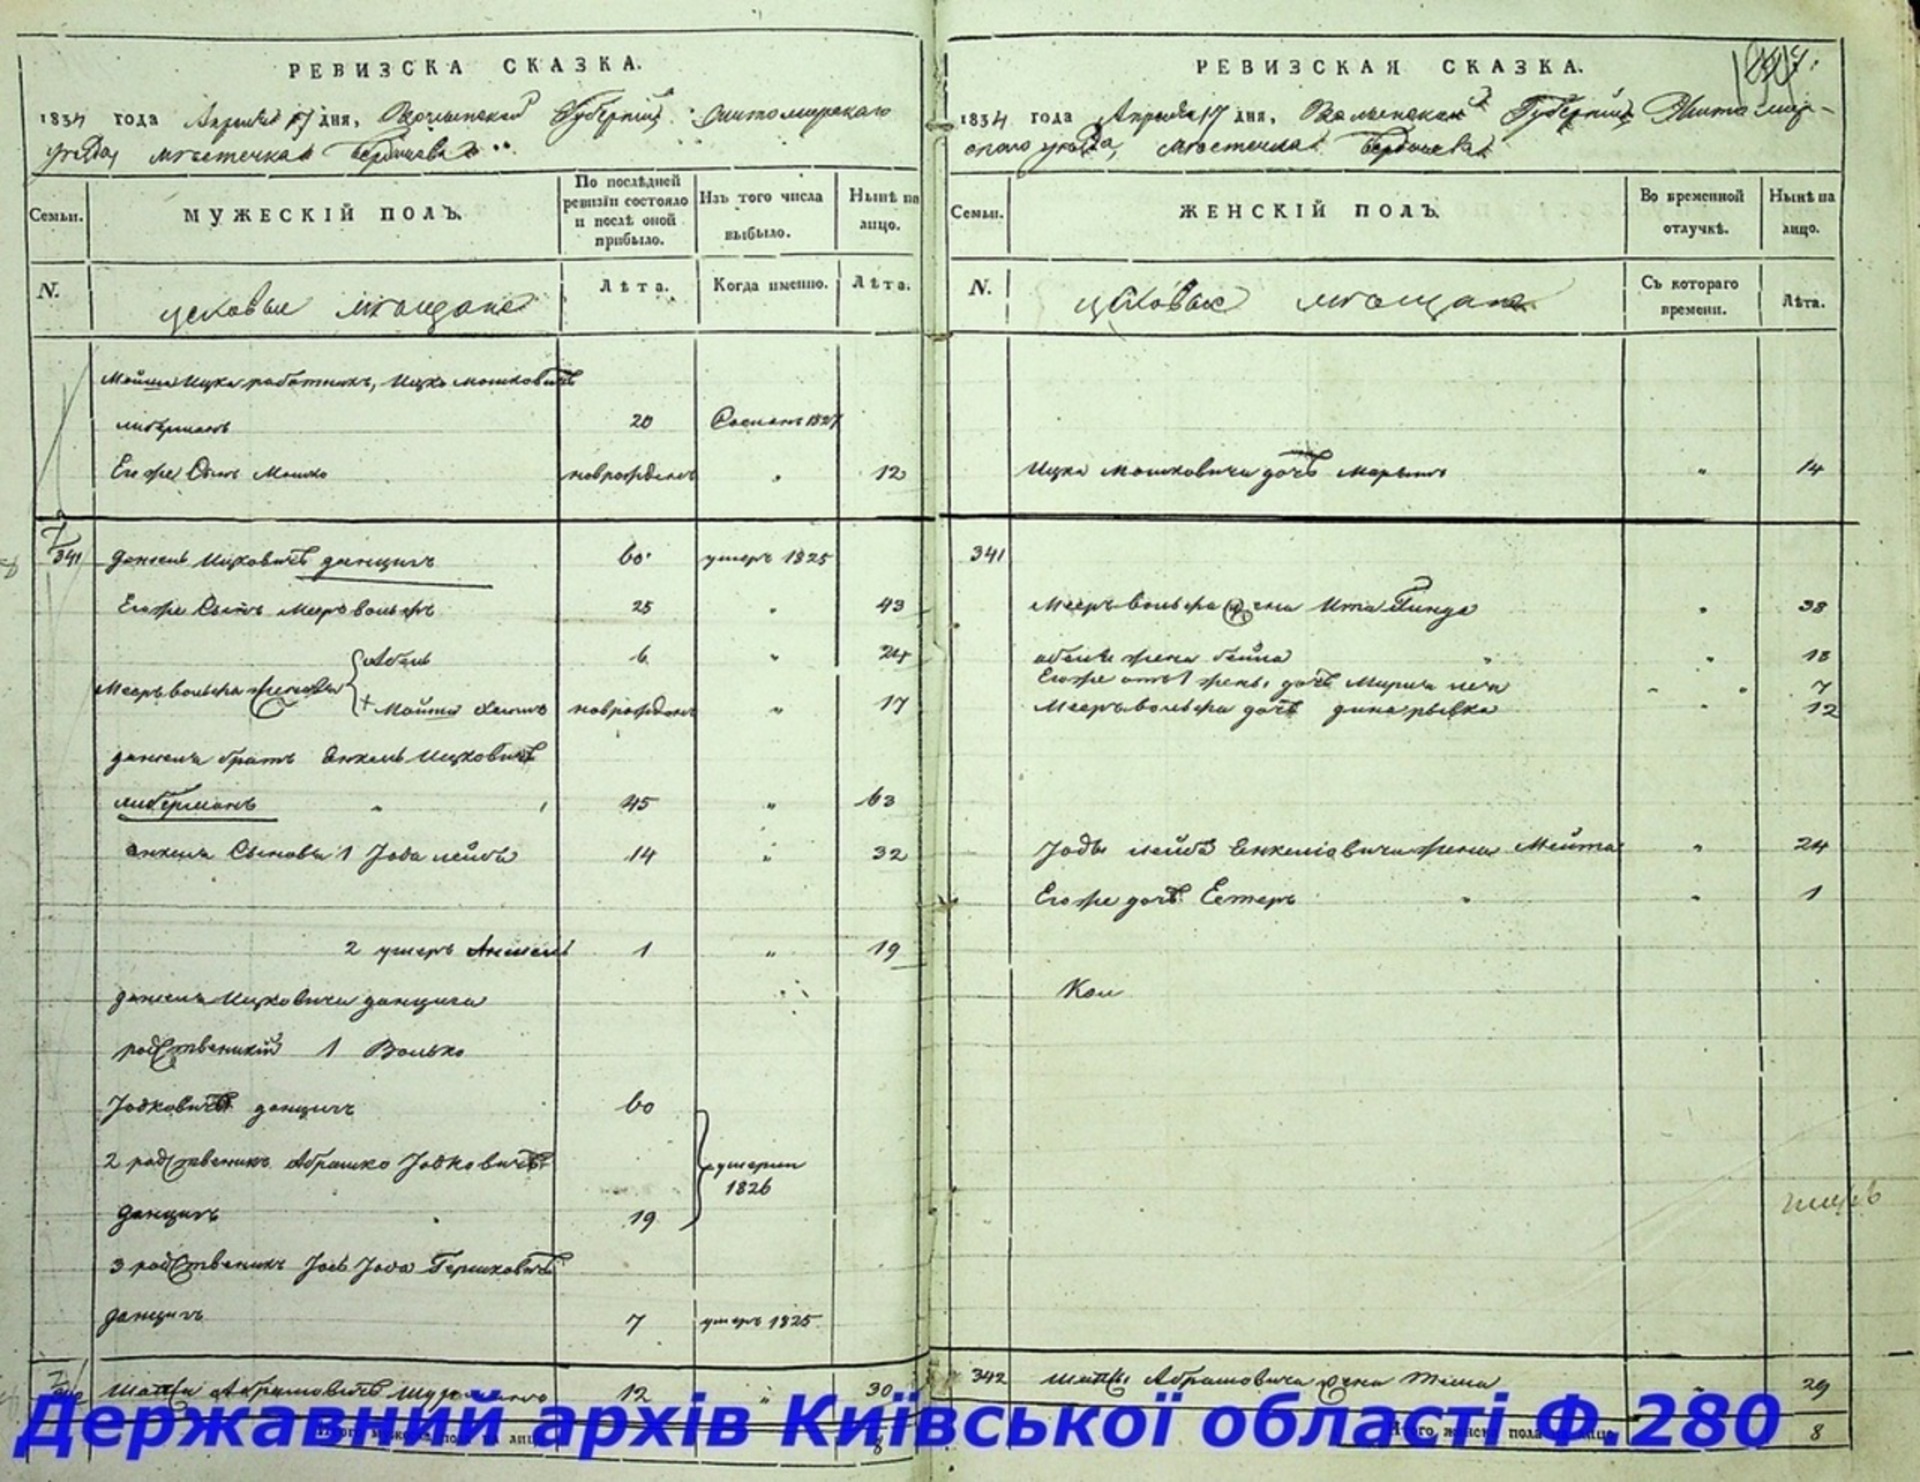 РЕВИЗСКА СКАЗКА.
1834 года Апреля 17 дня, Волынской Губернии Житомирскаго
уезда, местечка Бердичева
Семьи.
МУЖЕСКІЙ ПОЛЪ.
По послѣдней ревизіи состояло и послѣ оной прибыло.
Изъ того числа выбыло.
Нынѣ на лицо.
N.
цеховые мѣщане
Лѣта.
Когда именно.
Лѣта.
Мойша Ицка работникъ, Ицко Мошковичъ
либерманъ 20 1827
Егоже Сынъ Мошко новрожденъ " 12
341 Данель Ицковичъ данцигъ 60 умеръ 1825
Егоже Сынъ Мееръ вольфъ 25 " 43
Абель 6 " 24
Мееръ вольфа сыновья
+ Мойше новрожденъ " 17
данеля братъ Енкель Ицковичъ
либерманъ " 45 " 63
енкеля Сыновья 1 Іода лейба 14 " 32
2 умеръ Аншель 1 " 19
данеля Ицковича данцига
родственикій 1 Волько
Іодковичъ данцигъ 60
2 родственикъ Абрашко Іодковичъ
умерли
1826
данцигъ 19
3 родственикъ Іось Іода Гершковичъ
данцигъ 7 умеръ 1825
Абрамовичъ 12 " 30
8
РЕВИЗСКАЯ СКАЗКА.
1834 года Апреля 17 дня, Волынской Губернии Житомир-
скаго уезда, местечка Бердичева
Семьи.
ЖЕНСКІЙ ПОЛЪ.
Во временной отлучкѣ.
Нынѣ на лицо.
N.
цеховые мѣщане
Съ котораго времени.
Лѣта.
Ицка мошковича дочь Марьямъ " 14
341
Мееръ вольфа жена Ита Гинда " 38
абеля жена бейла " " 18
Егоже отъ 1 жены дочь Мириам " " 7
Мееръ вольфа дочь дина рывка " 12
Іоды лейба Енкеліовича жена Мейта " 24
Егоже дочь Естеръ " " 1
342 Абрамовича жена 29
Итого женска пола на лицо 8
Державний архів Київської області Ф.280